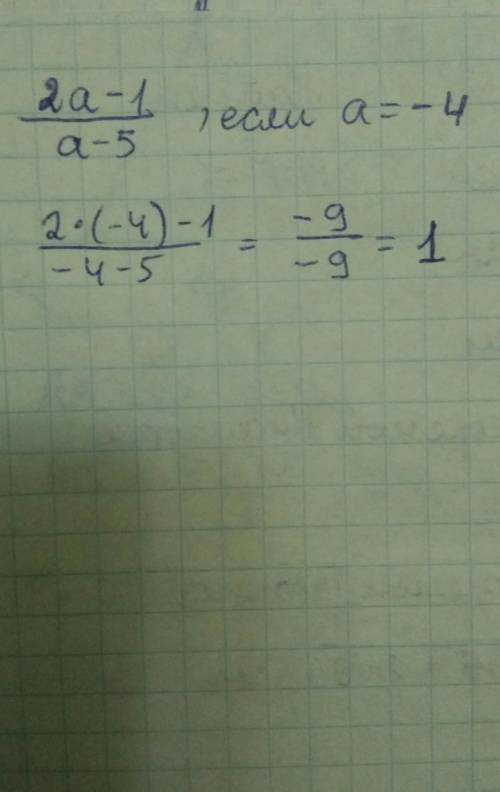 2a-1/a-5, если a=-4
2·(-4)-1/-4-5 = -9/-9 = 1